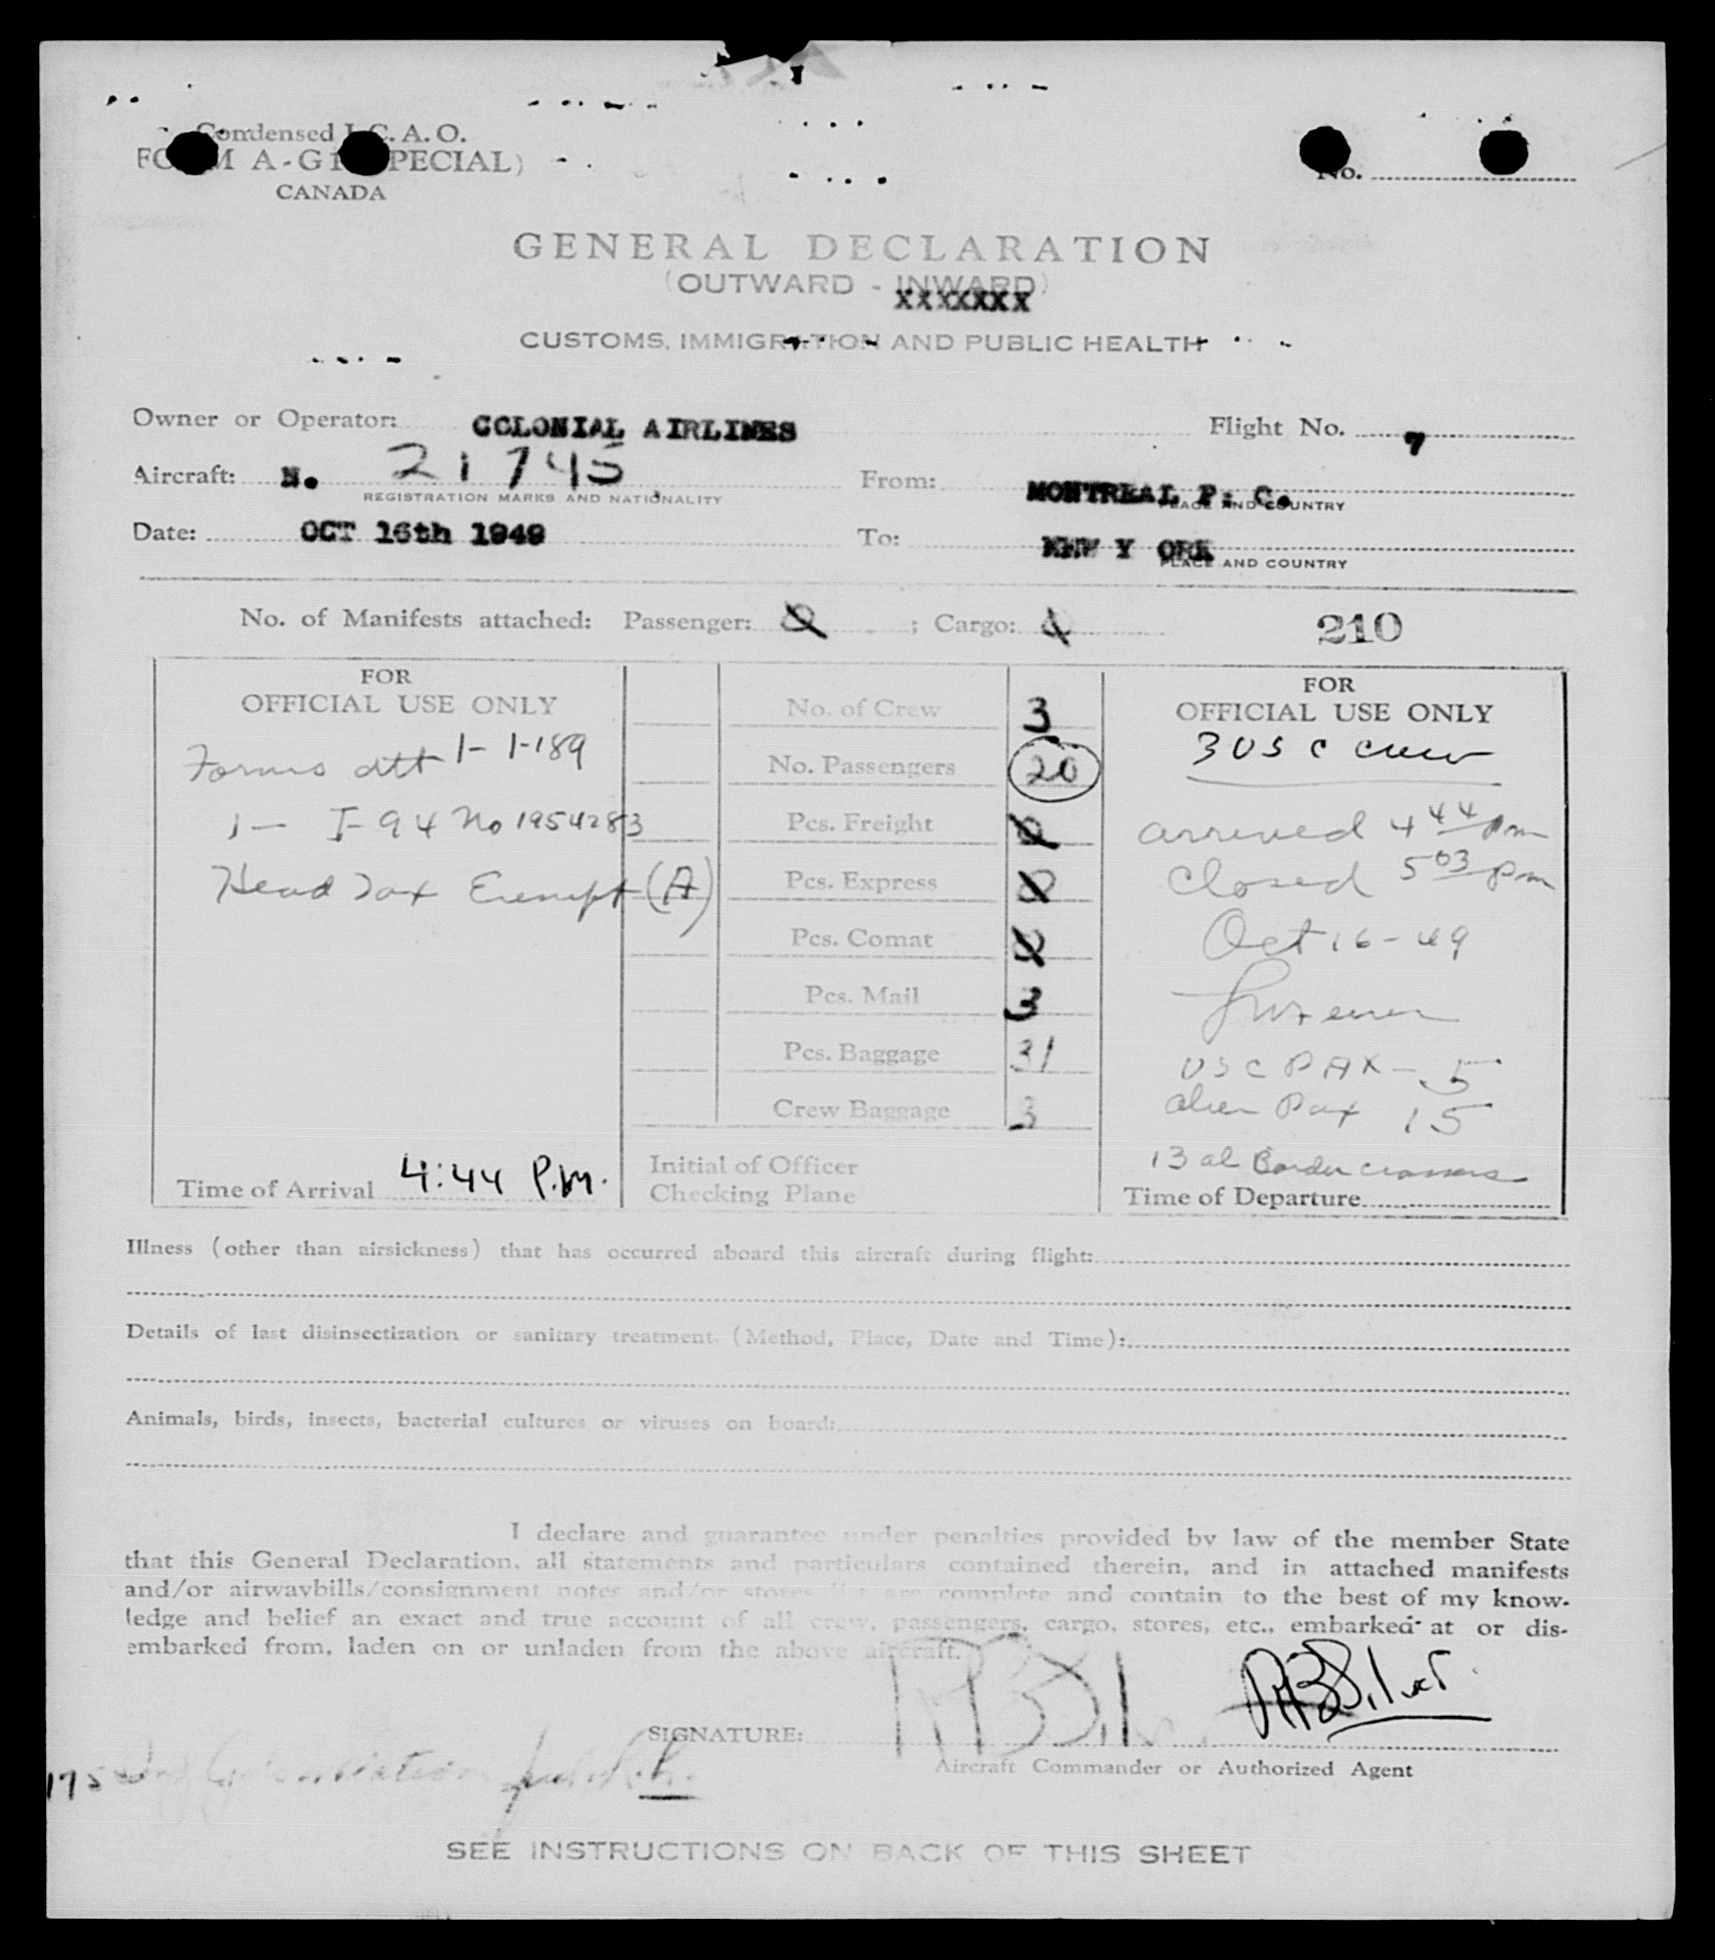 Condensed I. C. A. O.
FORM A-G1 (SPECIAL)
CANADA
No.
GENERAL DECLARATION
(OUTWARD - INWARD)
XXXXXXX
CUSTOMS, IMMIGRATION AND PUBLIC HEALTH
Owner or Operator: COLONIAL AIRLINES Flight No. 7
Aircraft: N. 21745 From: MONTREAL P. C.
REGISTRATION MARKS AND NATIONALITY PLACE AND COUNTRY
Date: OCT 16th 1949 To: NEW Y ORK
PLACE AND COUNTRY
No. of Manifests attached: Passenger: 0 ; Cargo: 0 210
FOR
OFFICIAL USE ONLY
Forms att 1- I-189
1- I-94 No 1954283
Head Tax Exempt (A)
Time of Arrival 4:44 P.M.
No. of Crew 3
No. Passengers 20
Pcs. Freight 0
Pcs. Express 0
Pcs. Comat 0
Pcs. Mail 3
Pcs. Baggage 31
Crew Baggage 3
Initial of Officer
Checking Plane
FOR
OFFICIAL USE ONLY
3 USC crew
arrived 4 44 pm
Closed 5 03 pm
Oct 16-49
USC PAX - 5
alien Pax 15
13 al Border crossers
Time of Departure
Illness (other than airsickness) that has occurred aboard this aircraft during flight:
Details of last disinsectization or sanitary treatment. (Method, Place, Date and Time):
Animals, birds, insects, bacterial cultures or viruses on board:
I declare and guarantee under penalties provided by law of the member State
that this General Declaration, all statements and particulars contained therein, and in attached manifests
and/or airwaybills/consignment notes and/or stores list are complete and contain to the best of my know-
ledge and belief an exact and true account of all crew, passengers, cargo, stores, etc., embarked at or dis-
embarked from, laden on or unladen from the above aircraft.
SIGNATURE: RBSilver
Aircraft Commander or Authorized Agent
175
SEE INSTRUCTIONS ON BACK OF THIS SHEET